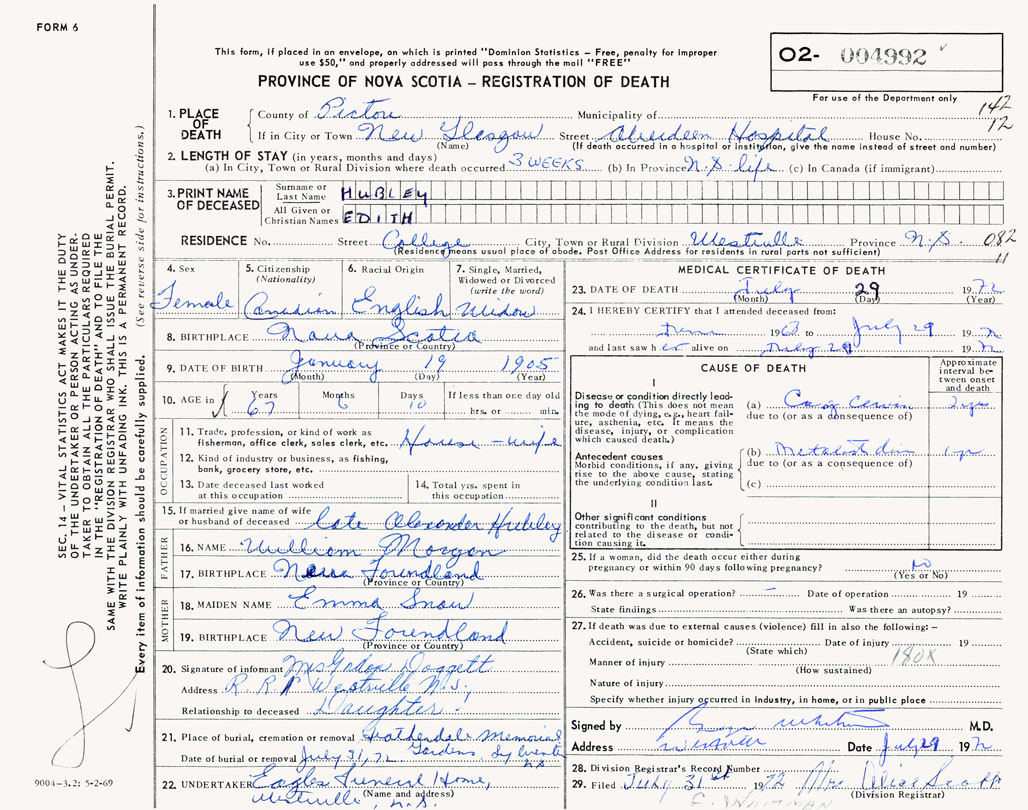 FORM 6
This form, if placed in an envelope, on which is printed "Dominion Statistics – Free, penalty for improper
use $50," and properly addressed will pass through the mail "FREE"
PROVINCE OF NOVA SCOTIA – REGISTRATION OF DEATH
O2- 004992
For use of the Department only
142
12
1. PLACE OF DEATH
County of Pictou Municipality of
If in City or Town New Glasgow Street Aberdeen Hospital House No.
(Name) (If death occurred in a hospital or institution, give the name instead of street and number)
2. LENGTH OF STAY (in years, months and days)
(a) In City, Town or Rural Division where death occurred 3 WEEKS (b) In Province N.S. life (c) In Canada (if immigrant)
3. PRINT NAME OF DECEASED
Surname or Last Name HUBLEY
All Given or Christian Names EDITH
RESIDENCE No. Street College City, Town or Rural Division Westville Province N.S. 082
11
(Residence means usual place of abode. Post Office Address for residents in rural parts not sufficient)
4. Sex Female
5. Citizenship (Nationality) Canadian
6. Racial Origin English
7. Single, Married, Widowed or Divorced (write the word) Widow
8. BIRTHPLACE Nova Scotia
(Province or Country)
9. DATE OF BIRTH January 19 1905
(Month) (Day) (Year)
10. AGE in Years 67 Months 6 Days 10 If less than one day old
hrs. or min.
OCCUPATION
11. Trade, profession, or kind of work as
fisherman, office clerk, sales clerk, etc. House-wife
12. Kind of industry or business, as fishing,
bank, grocery store, etc.
13. Date deceased last worked
at this occupation
14. Total yrs. spent in
this occupation
15. If married give name of wife
or husband of deceased late Alexander Hubley
FATHER
16. NAME William Morgan
17. BIRTHPLACE Foundland
(Province or Country)
MOTHER
18. MAIDEN NAME Emma Snow
19. BIRTHPLACE New Foundland
(Province or Country)
20. Signature of informant Mrs Gordon Doggett
Address R.R. 1 Westville N.S.
Relationship to deceased Daughter
21. Place of burial, cremation or removal Heatherdale Memorial
Gardens, Sylvester
Date of burial or removal July 31, 72 N.S.
22. UNDERTAKER Eagles Funeral Home,
(Name and address)
Westville, N.S.
MEDICAL CERTIFICATE OF DEATH
23. DATE OF DEATH July 29 1972
(Month) (Day) (Year)
24. I HEREBY CERTIFY that I attended deceased from:
196 to July 29 19 72
and last saw her alive on July 29 19 72
CAUSE OF DEATH
Approximate interval between onset and death
I
Disease or condition directly leading to death (This does not mean the mode of dying, e.g., heart failure, asthenia, etc. It means the disease, injury, or complication which caused death.)
(a) Ca of Cervix 2 yrs
due to (or as a consequence of)
Antecedent causes
Morbid conditions, if any, giving rise to the above cause, stating the underlying condition last.
(b) 1 yr
due to (or as a consequence of)
(c)
II
Other significant conditions contributing to the death, but not related to the disease or condition causing it.
25. If a woman, did the death occur either during
pregnancy or within 90 days following pregnancy? No
(Yes or No)
26. Was there a surgical operation? – Date of operation 19
State findings Was there an autopsy?
27. If death was due to external causes (violence) fill in also the following: –
Accident, suicide or homicide? Date of injury 19
(State which)
180X
Manner of injury
(How sustained)
Nature of injury
Specify whether injury occurred in industry, in home, or in public place
Signed by M.D.
Address Westville Date July 29 1972
28. Division Registrar's Record Number
29. Filed July 31st 1972 Mrs Alice Scott
(Division Registrar)
E. WHITMAN
SEC. 14 – VITAL STATISTICS ACT MAKES IT THE DUTY
OF THE UNDERTAKER OR PERSON ACTING AS UNDER-
TAKER TO OBTAIN ALL THE PARTICULARS REQUIRED
IN THE "REGISTRATION OF DEATH" AND TO FILE THE
SAME WITH THE DIVISION REGISTRAR WHO SHALL ISSUE THE BURIAL PERMIT.
WRITE PLAINLY WITH UNFADING INK. THIS IS A PERMANENT RECORD.
Every item of information should be carefully supplied. (See reverse side for instructions.)
9004–3.2: 5-2-69